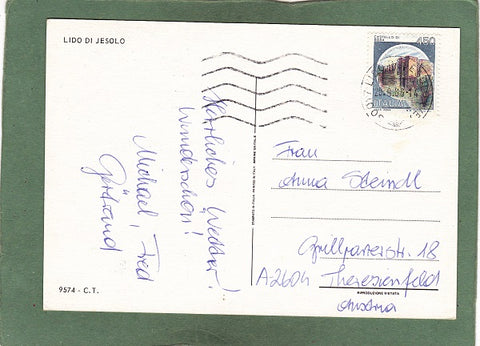 LIDO DI JESOLO
450
ITALIA
Herrliches Wetter!
Wunderschön!
Michael, Fred
Gertraud
Frau
Anna Steindl
Grillparzerstr. 18
A2604 Theresienfeld
Austria
9574 - C.T.
RIPRODUZIONE VIETATA